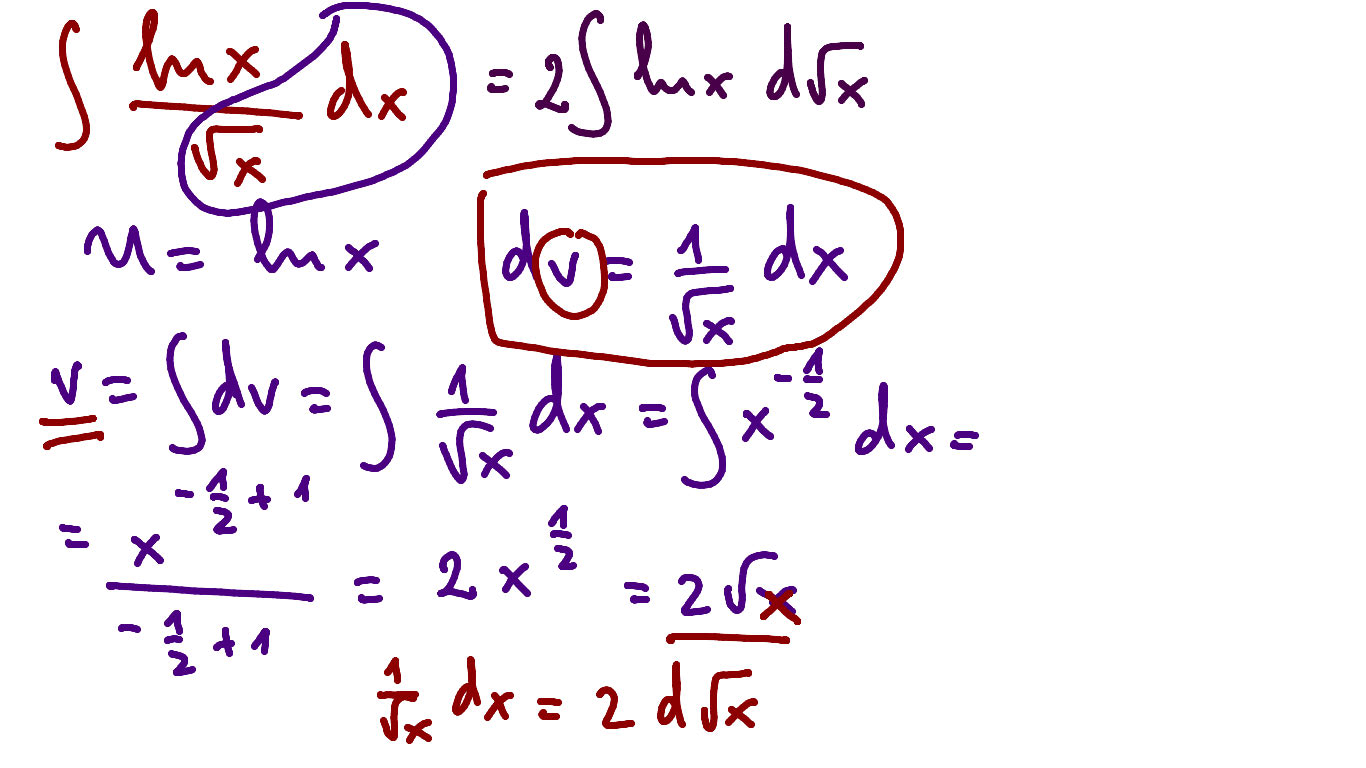 ∫ ln x / √x dx = 2 ∫ ln x d√x
u = ln x dv = 1/√x dx
v = ∫ dv = ∫ 1/√x dx = ∫ x^(-1/2) dx =
= x^(-1/2 + 1) / (-1/2 + 1) = 2 x^(1/2) = 2√x
1/√x dx = 2 d√x